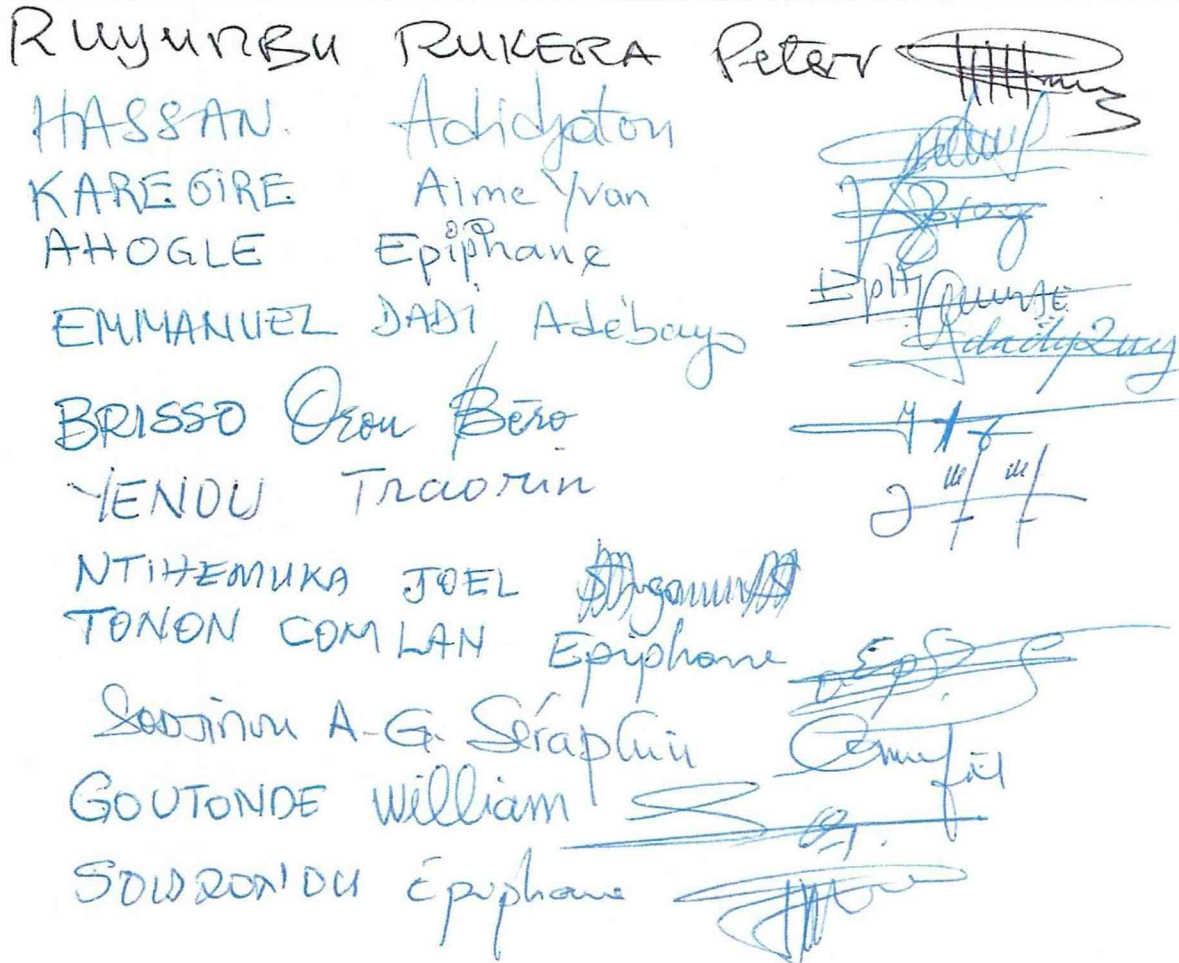 RuyuмBu RUKERA Peter
HASSAN. Adidjatou
KAREGIRE Aime Yvan
AHOGLE Epiphane
EMMANUEL DADI Adébayo
BRISSO Orou Béro
YENDU Traorin
NTIHEMUKA JOEL
TONON COMLAN Epiphane
SODJINOU A-G. Séraphin
GOUTONDE William
Epiphane